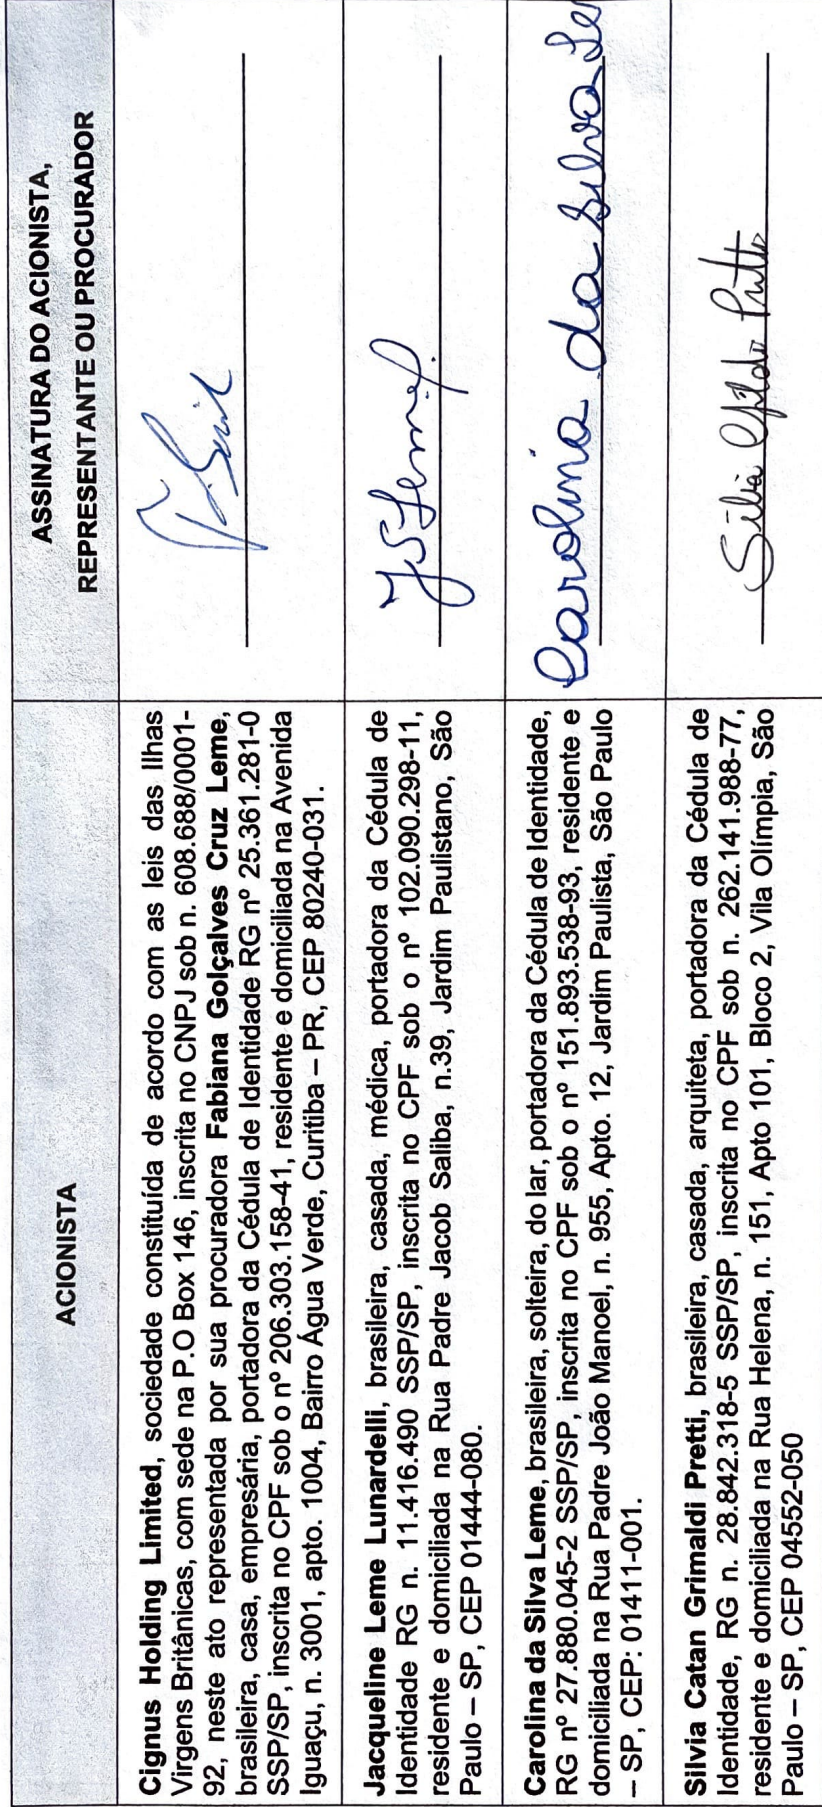 ACIONISTA
ASSINATURA DO ACIONISTA,
REPRESENTANTE OU PROCURADOR
Cignus Holding Limited, sociedade constituída de acordo com as leis das Ilhas
Virgens Britânicas, com sede na P.O Box 146, inscrita no CNPJ sob n. 608.688/0001-
92, neste ato representada por sua procuradora Fabiana Golçalves Cruz Leme,
brasileira, casa, empresária, portadora da Cédula de Identidade RG nº 25.361.281-0
SSP/SP, inscrita no CPF sob o nº 206.303.158-41, residente e domiciliada na Avenida
Iguaçu, n. 3001, apto. 1004, Bairro Água Verde, Curitiba – PR, CEP 80240-031.
Jacqueline Leme Lunardelli, brasileira, casada, médica, portadora da Cédula de
Identidade RG n. 11.416.490 SSP/SP, inscrita no CPF sob o nº 102.090.298-11,
residente e domiciliada na Rua Padre Jacob Saliba, n.39, Jardim Paulistano, São
Paulo – SP, CEP 01444-080.
Carolina da Silva Leme, brasileira, solteira, do lar, portadora da Cédula de Identidade,
RG nº 27.880.045-2 SSP/SP, inscrita no CPF sob o nº 151.893.538-93, residente e
domiciliada na Rua Padre João Manoel, n. 955, Apto. 12, Jardim Paulista, São Paulo
– SP, CEP: 01411-001.
Carolina da Silva Le
Silvia Catan Grimaldi Pretti, brasileira, casada, arquiteta, portadora da Cédula de
Identidade, RG n. 28.842.318-5 SSP/SP, inscrita no CPF sob n. 262.141.988-77,
residente e domiciliada na Rua Helena, n. 151, Apto 101, Bloco 2, Vila Olímpia, São
Paulo – SP, CEP 04552-050